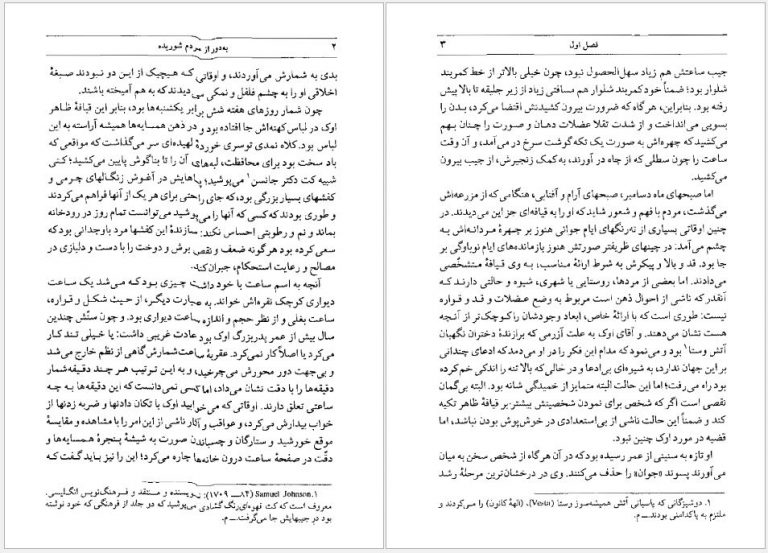 ۲ به‌دور از مردم شوریده
بدی به شمارش می‌آوردند، و اوقاتی که هیچیک از این دو نبودند صبغهٔ
اخلاقی او را به چشم فلفل و نمکی می‌دیدند که به هم آمیخته باشند.
چون شمار روزهای هفته شش برابر یکشنبه‌ها بود، بنابر این قیافهٔ ظاهر
اوک در لباس کهنه‌اش جا افتاده بود و در ذهن همسایه‌ها همیشه آراسته به این
لباس بود. کلاه نمدی توسری خوردهٔ لهیده‌ای سر می‌گذاشت که مواقعی که
باد سخت بود برای محافظت، لبه‌های آن را تا بناگوش پایین می‌کشید؛ کتی
شبیه کت دکتر جانسن۱ می‌پوشید؛ پاهایش در آغوش زنگالهای چرمی و
کفشهای بسیار بزرگی بود، که جای راحتی برای هر یک از آنها فراهم می‌کردند
و طوری بودند که کسی که آنها را می‌پوشید می‌توانست تمام روز در رودخانه
بماند و نم و رطوبتی احساس نکند: سازندهٔ این کفشها مرد باوجدانی بود که
سعی کرده بود هرگونه ضعف و نقص برش و دوخت را با دست و دلبازی در
مصالح و رعایت استحکام، جبران کند.
آنچه به اسم ساعت با خود داشت چیزی بود که می‌شد یک ساعت
دیواری کوچک نقره‌اش خواند. به عبارت دیگر، از حیث شکل و قواره،
ساعت بغلی و از نظر حجم و اندازه ساعت دیواری بود. و چون سنّش چندین
سال بیش از عمر پدربزرگ اوک بود عادت غریبی داشت: یا خیلی تند کار
می‌کرد یا اصلاً کار نمی‌کرد. عقربهٔ ساعت‌شمارش گاهی از نظم خارج می‌شد
و بی‌جهت دور محورش می‌چرخید، و به این ترتیب هر چند دقیقه‌شمار
دقیقه‌ها را با دقت نشان می‌داد، اما کسی نمی‌دانست که این دقیقه‌ها به چه
ساعتی تعلق دارند. اوقاتی که می‌خوابید اوک با تکان دادنها و ضربه زدنها از
خواب بیدارش می‌کرد، و عواقب و آثار ناشی از این امر را با مشاهده و مقایسهٔ
موقع خورشید و ستارگان و چسباندن صورت به شیشهٔ پنجرهٔ همسایه‌ها و
دقّت در صفحهٔ ساعت درون خانه‌ها چاره می‌کرد؛ این را نیز باید گفت که
۱. Samuel Johnson (۸۴ـ۱۷۰۹): نویسنده و منتقد و فرهنگ‌نویس انگلیسی.
معروف است که کت قهوه‌ای‌رنگ گشادی می‌پوشید که دو جلد از فرهنگی که خود نوشته
بود در جیبهایش جا می‌گرفت.ـ م.
فصل اول ۳
جیب ساعتش هم زیاد سهل‌الحصول نبود، چون خیلی بالاتر از خط کمربند
شلوار بود؛ ضمناً خود کمربند شلوار هم مسافتی زیاد از زیر جلیقه تا بالا پیش
رفته بود. بنابراین، هرگاه که ضرورت بیرون کشیدنش اقتضا می‌کرد، بدن را
بسویی می‌انداخت و از شدت تقلا عضلات دهان و صورت را چنان بهم
می‌کشید که چهره‌اش به صورت یک تکه گوشت سرخ در می‌آمد، و آن وقت
ساعت را چون سطلی که از چاه در آورند، به کمک زنجیرش، از جیب بیرون
می‌کشید.
اما صبحهای ماه دسامبر، صبحهای آرام و آفتابی، هنگامی که از مزرعه‌اش
می‌گذشت، مردم با فهم و شعور شاید که او را به قیافه‌ای جز این می‌دیدند. در
چنین اوقاتی بسیاری از ته‌رنگهای ایام جوانی هنوز بر چهرهٔ مردانه‌اش به
چشم می‌آمد: در چینهای ظریفتر صورتش هنوز بازمانده‌های ایام نوباوگی بر
جا بود. قد و بالا و پیکرش به شرط ارائهٔ مناسب، به وی قیافهٔ متشخّصی
می‌دادند. اما بعضی از مردها، روستایی یا شهری، شیوه و حالتی دارند که
آنقدر که ناشی از احوال ذهن است مربوط به وضع عضلات و قد و قواره
نیست: طوری است که با ارائهٔ خاص، ابعاد وجودشان را کوچک‌تر از آنچه
هست نشان می‌دهند. و آقای اوک به علت آزرمی که برازندهٔ دختران نگهبان
آتش وستا۱ بود و می‌نمود که مدام این فکر را در او می‌دمد که ادعای چندانی
بر این جهان ندارد، به شیوه‌ای بی‌ادعا و در حالی که بالاتنه را اندکی خم کرده
بود راه می‌رفت؛ اما این حالت البته متمایز از خمیدگی شانه بود. البته بی‌گمان
نقصی است اگر که شخص برای نمودن شخصیتش بیشتر بر قیافهٔ ظاهر تکیه
کند و ضمناً این حالت ناشی از بی‌استعدادی در خوش‌پوش بودن نباشد، اما
قضیه در مورد اوک چنین نبود.
او تازه به سنینی از عمر رسیده بود که در آن هرگاه از شخص سخن به میان
می‌آورند پسوند «جوان» را حذف می‌کنند. وی در درخشان‌ترین مرحلهٔ رشد
۱. دوشیزگانی که پاسبانی آتش همیشه‌سوز وستا (Vesta)، (الههٔ کانون) را می‌کردند و
ملتزم به پاکدامنی بودند.ـ م.